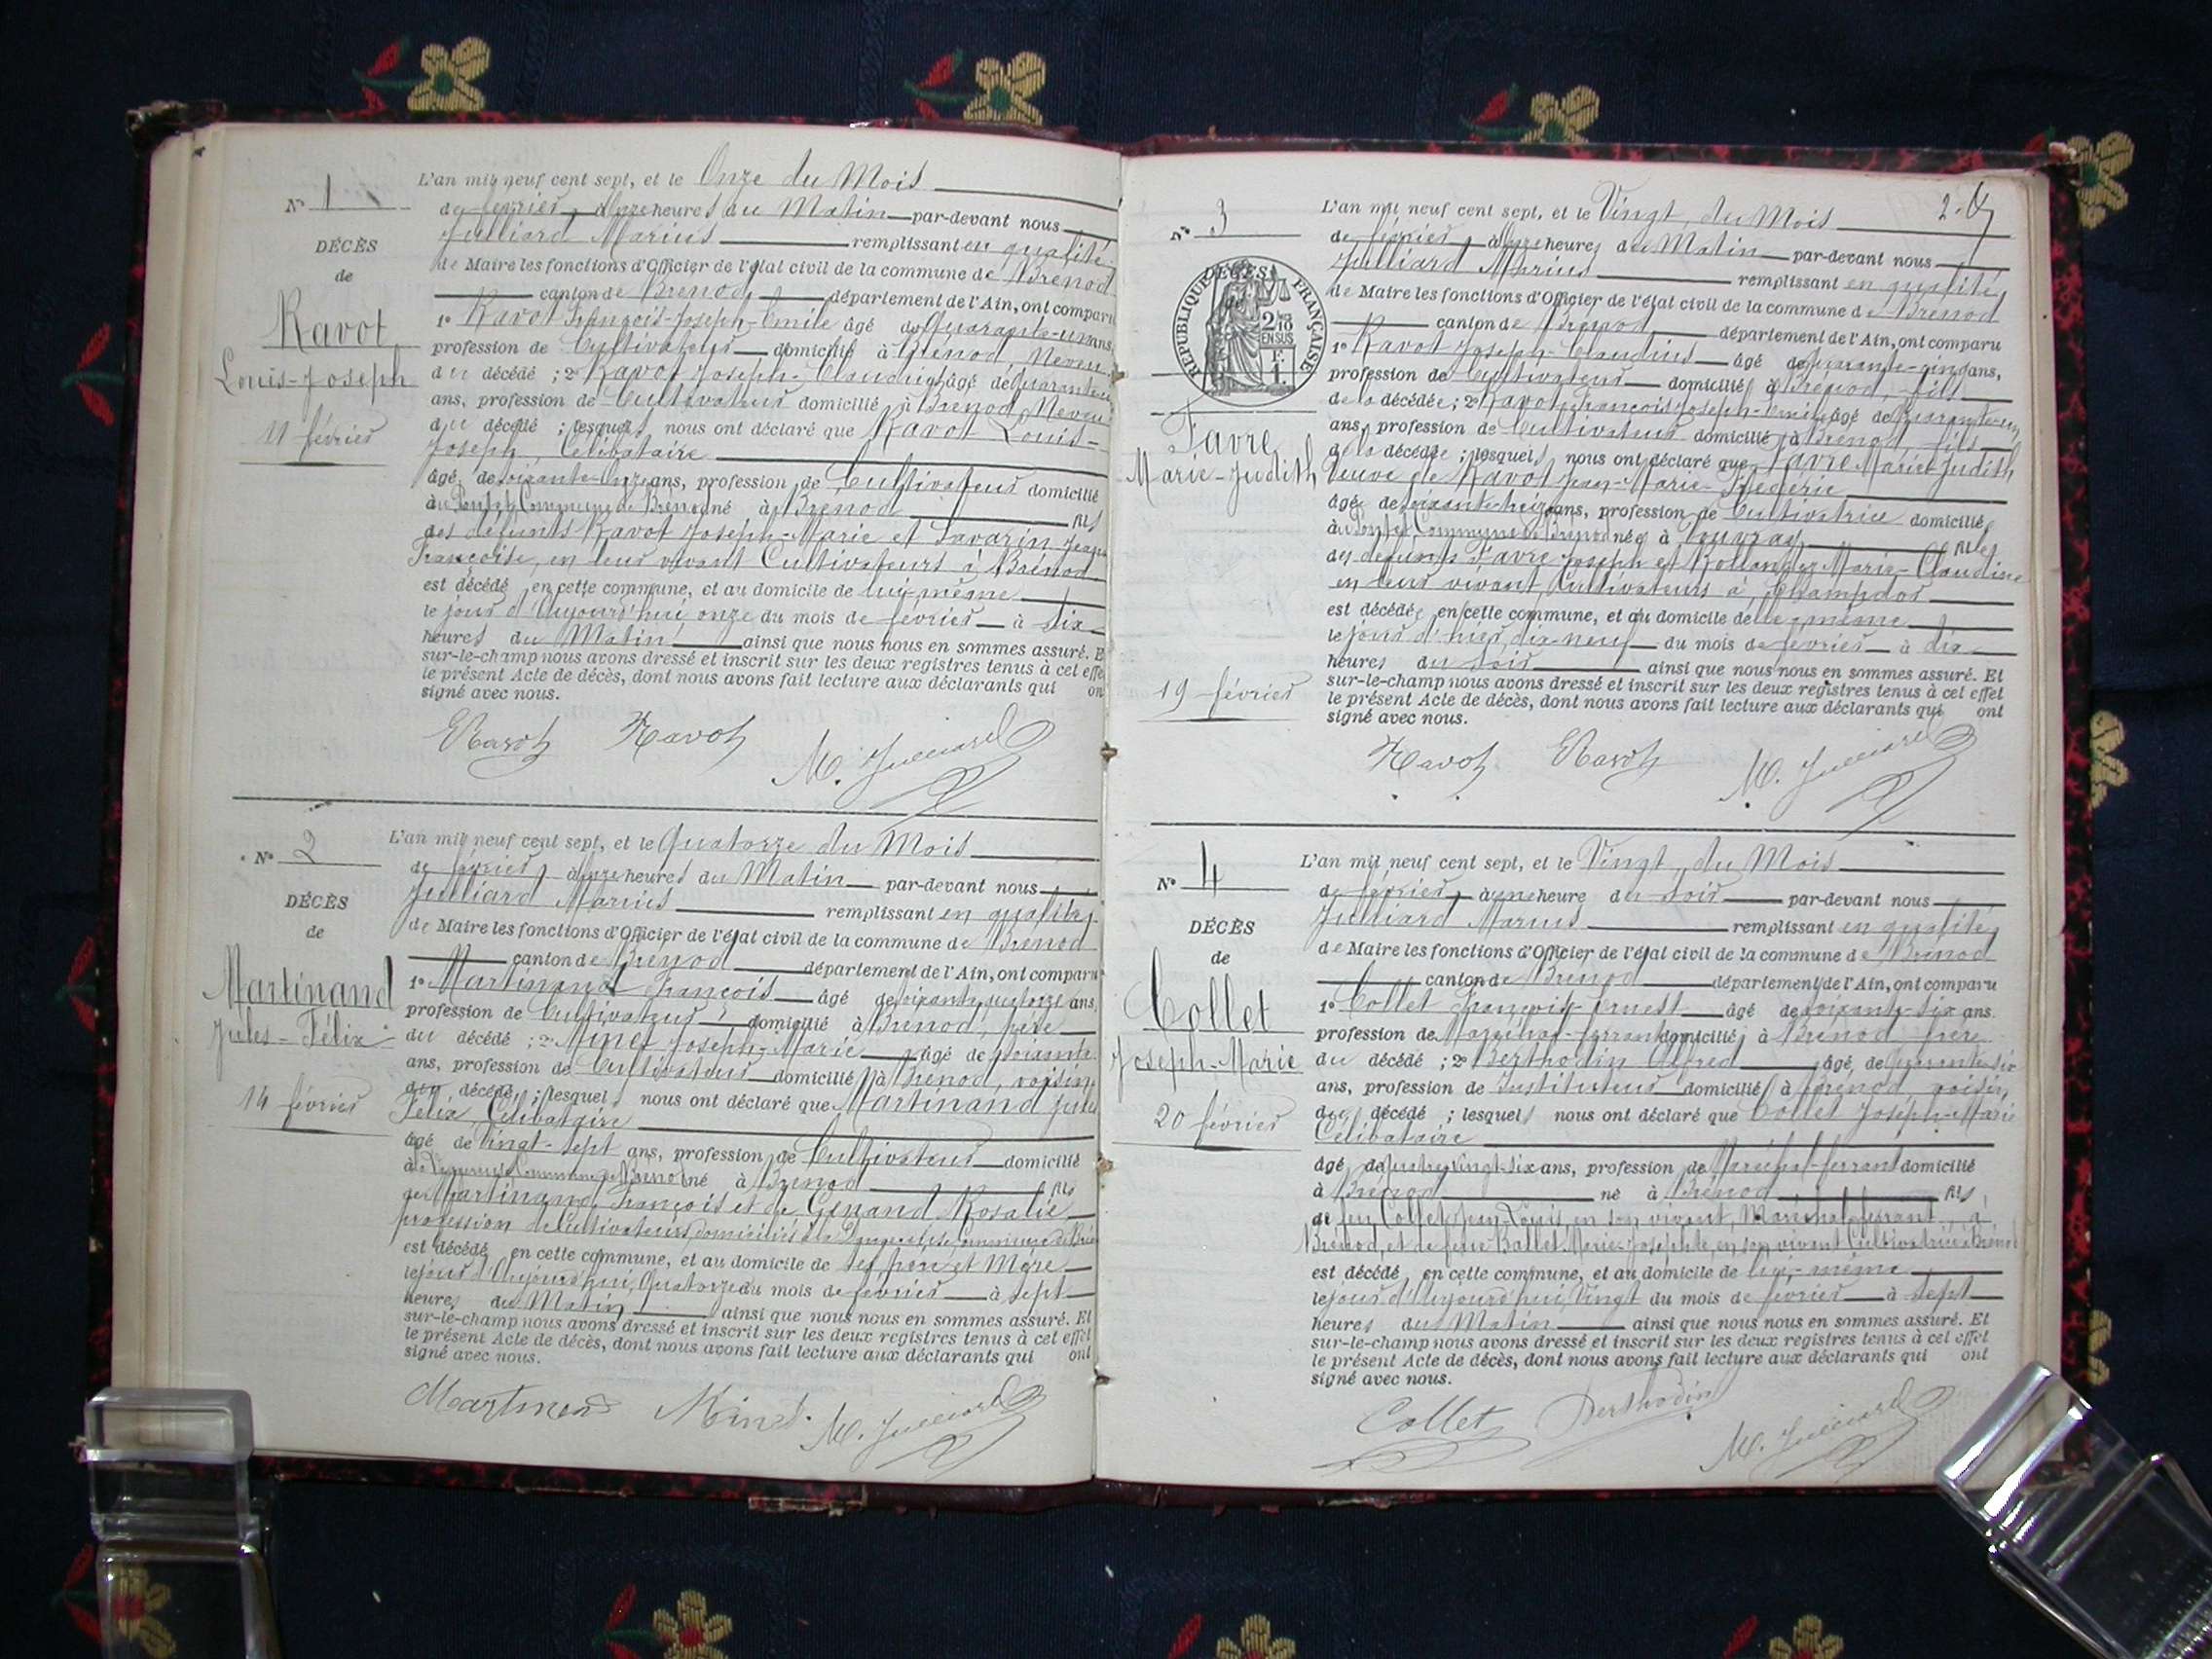 N° 1
DÉCÈS
de
Ravot
Louis-Joseph
11 février
L'an mil neuf cent sept, et le Onze du Mois
de février, à onze heures du Matin par-devant nous
Julliard Marius remplissant en qualité
de Maire les fonctions d'Officier de l'état civil de la commune de Brénod
canton de Brénod, département de l'Ain, ont comparu
1° Ravot François-Joseph-Emile âgé de Quarante-un ans,
profession de Cultivateur domicilié à Brénod, Neveu
du décédé ; 2° Ravot Joseph-Claudius âgé de Quarante
ans, profession de Cultivateur domicilié à Brénod, Neveu
du décédé ; lesquels nous ont déclaré que Ravot Louis-
Joseph, Célibataire
âgé de soixante-onze ans, profession de Cultivateur domicilié
au Commune de Brénod né à Brénod fils
des défunts Ravot Joseph-Marie et Savarin Jeanne
Françoise, en leur vivant Cultivateurs à Brénod
est décédé en cette commune, et au domicile de lui-même
le jour d'Aujourd'hui onze du mois de février à six
heures du Matin ainsi que nous nous en sommes assuré. E
sur-le-champ nous avons dressé et inscrit sur les deux registres tenus à cet effe
le présent Acte de décès, dont nous avons fait lecture aux déclarants qui on
signé avec nous.
ERavot Ravot M. Julliard
N° 2
DÉCÈS
de
Martinand
Jules-Félix
14 février
L'an mil neuf cent sept, et le Quatorze du Mois
de février, à onze heures du Matin par-devant nous
Julliard Marius remplissant en qualité
de Maire les fonctions d'Officier de l'état civil de la commune de Brénod
canton de Brénod département de l'Ain, ont comparu
1° Martinand François âgé de soixante-quatorze ans,
profession de Cultivateur domicilié à Brénod, père
du décédé ; 2° Minet Joseph-Marie âgé de soixante
ans, profession de Cultivateur domicilié à Brénod, voisin
du décédé ; lesquels nous ont déclaré que Martinand Jules
Félix, Célibataire
âgé de Vingt-sept ans, profession de Cultivateur domicilié
à Commune de Brénod né à Brénod fils
de Martinand François et de Genand Rosalie
profession de Cultivateurs, domiciliés à la Commune de Bré
est décédé en cette commune, et au domicile de ses père et Mère
le jour d'Aujourd'hui, Quatorze du mois de février à sept
heures du Matin ainsi que nous nous en sommes assuré. Et
sur-le-champ nous avons dressé et inscrit sur les deux registres tenus à cet effet
le présent Acte de décès, dont nous avons fait lecture aux déclarants qui ont
signé avec nous.
Martinand Minet. M. Julliard
2
N° 3
DÉCÈS
de
RÉPUBLIQUE FRANÇAISE
2/10 EN SUS
1 F.
Favre
Marie-Judith
19 février
L'an mil neuf cent sept, et le Vingt, du Mois
de février, à onze heures du Matin par-devant nous
Julliard Marius remplissant en qualité
de Maire les fonctions d'Officier de l'état civil de la commune de Brénod
canton de Brénod département de l'Ain, ont comparu
1° Ravot Joseph-Claudius âgé de quarante-cinq ans,
profession de Cultivateur domicilié à Brénod, fils
de la décédée ; 2° Ravot François Joseph-Emile âgé de Quarante-un
ans, profession de Cultivateur domicilié à Brénod, fils
de la décédée ; lesquels nous ont déclaré que Favre Marie-Judith
Veuve de Ravot Jean-Marie-Frédéric
âgée de soixante-treize ans, profession de Cultivatrice domiciliée
au Commune de Brénod née à fille
des défunts Favre Joseph et Rollandez Marie-Claudine
en leur vivant Cultivateurs à Champdor
est décédée en cette commune, et au domicile de elle-même
le jour d'hier, dix-neuf du mois de février à dix
heures du soir ainsi que nous nous en sommes assuré. Et
sur-le-champ nous avons dressé et inscrit sur les deux registres tenus à cet effet
le présent Acte de décès, dont nous avons fait lecture aux déclarants qui ont
signé avec nous.
Ravot ERavot M. Julliard
N° 4
DÉCÈS
de
Collet
Joseph-Marie
20 février
L'an mil neuf cent sept, et le Vingt, du Mois
de février, à une heure du soir par-devant nous
Julliard Marius remplissant en qualité
de Maire les fonctions d'Officier de l'état civil de la commune de Brénod
canton de Brénod département de l'Ain, ont comparu
1° Collet François-Ernest âgé de soixante-six ans.
profession de Maréchal-ferrant domicilié à Brénod, frère
du décédé ; 2° Berthodin Alfred âgé de quarante-six
ans, profession de Instituteur domicilié à Brénod voisin
du décédé ; lesquels nous ont déclaré que Collet Joseph-Marie
Célibataire
âgé de quatre-vingt-six ans, profession de Maréchal-ferrant domicilié
à Brénod né à Brénod fils
de feu Collet Jean-Louis, en son vivant, Maréchal-ferrant, à
Brénod, et de feue Ballet Marie-Josephte, en son vivant Cultivatrice à Brénod
est décédé en cette commune, et au domicile de lui-même
le jour d'Aujourd'hui, Vingt du mois de février à sept
heures du Matin ainsi que nous nous en sommes assuré. Et
sur-le-champ nous avons dressé et inscrit sur les deux registres tenus à cet effet
le présent Acte de décès, dont nous avons fait lecture aux déclarants qui ont
signé avec nous.
Collet Berthodin M. Julliard